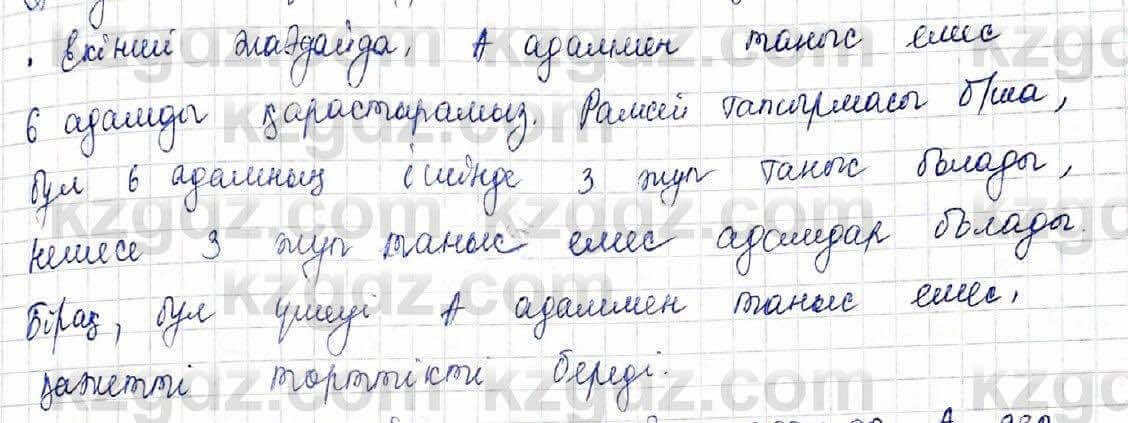 . Екінші жағдайда, А адаммен таныс емес
6 адамды қарастырамыз. Рамсей тапсырмасы б/ша,
бұл 6 адамның ішінде 3 жұп таныс болады,
немесе 3 жұп таныс емес адамдар болады.
Бірақ, бұл үшеуі А адаммен таныс емес,
қажетті төрттікті береді.